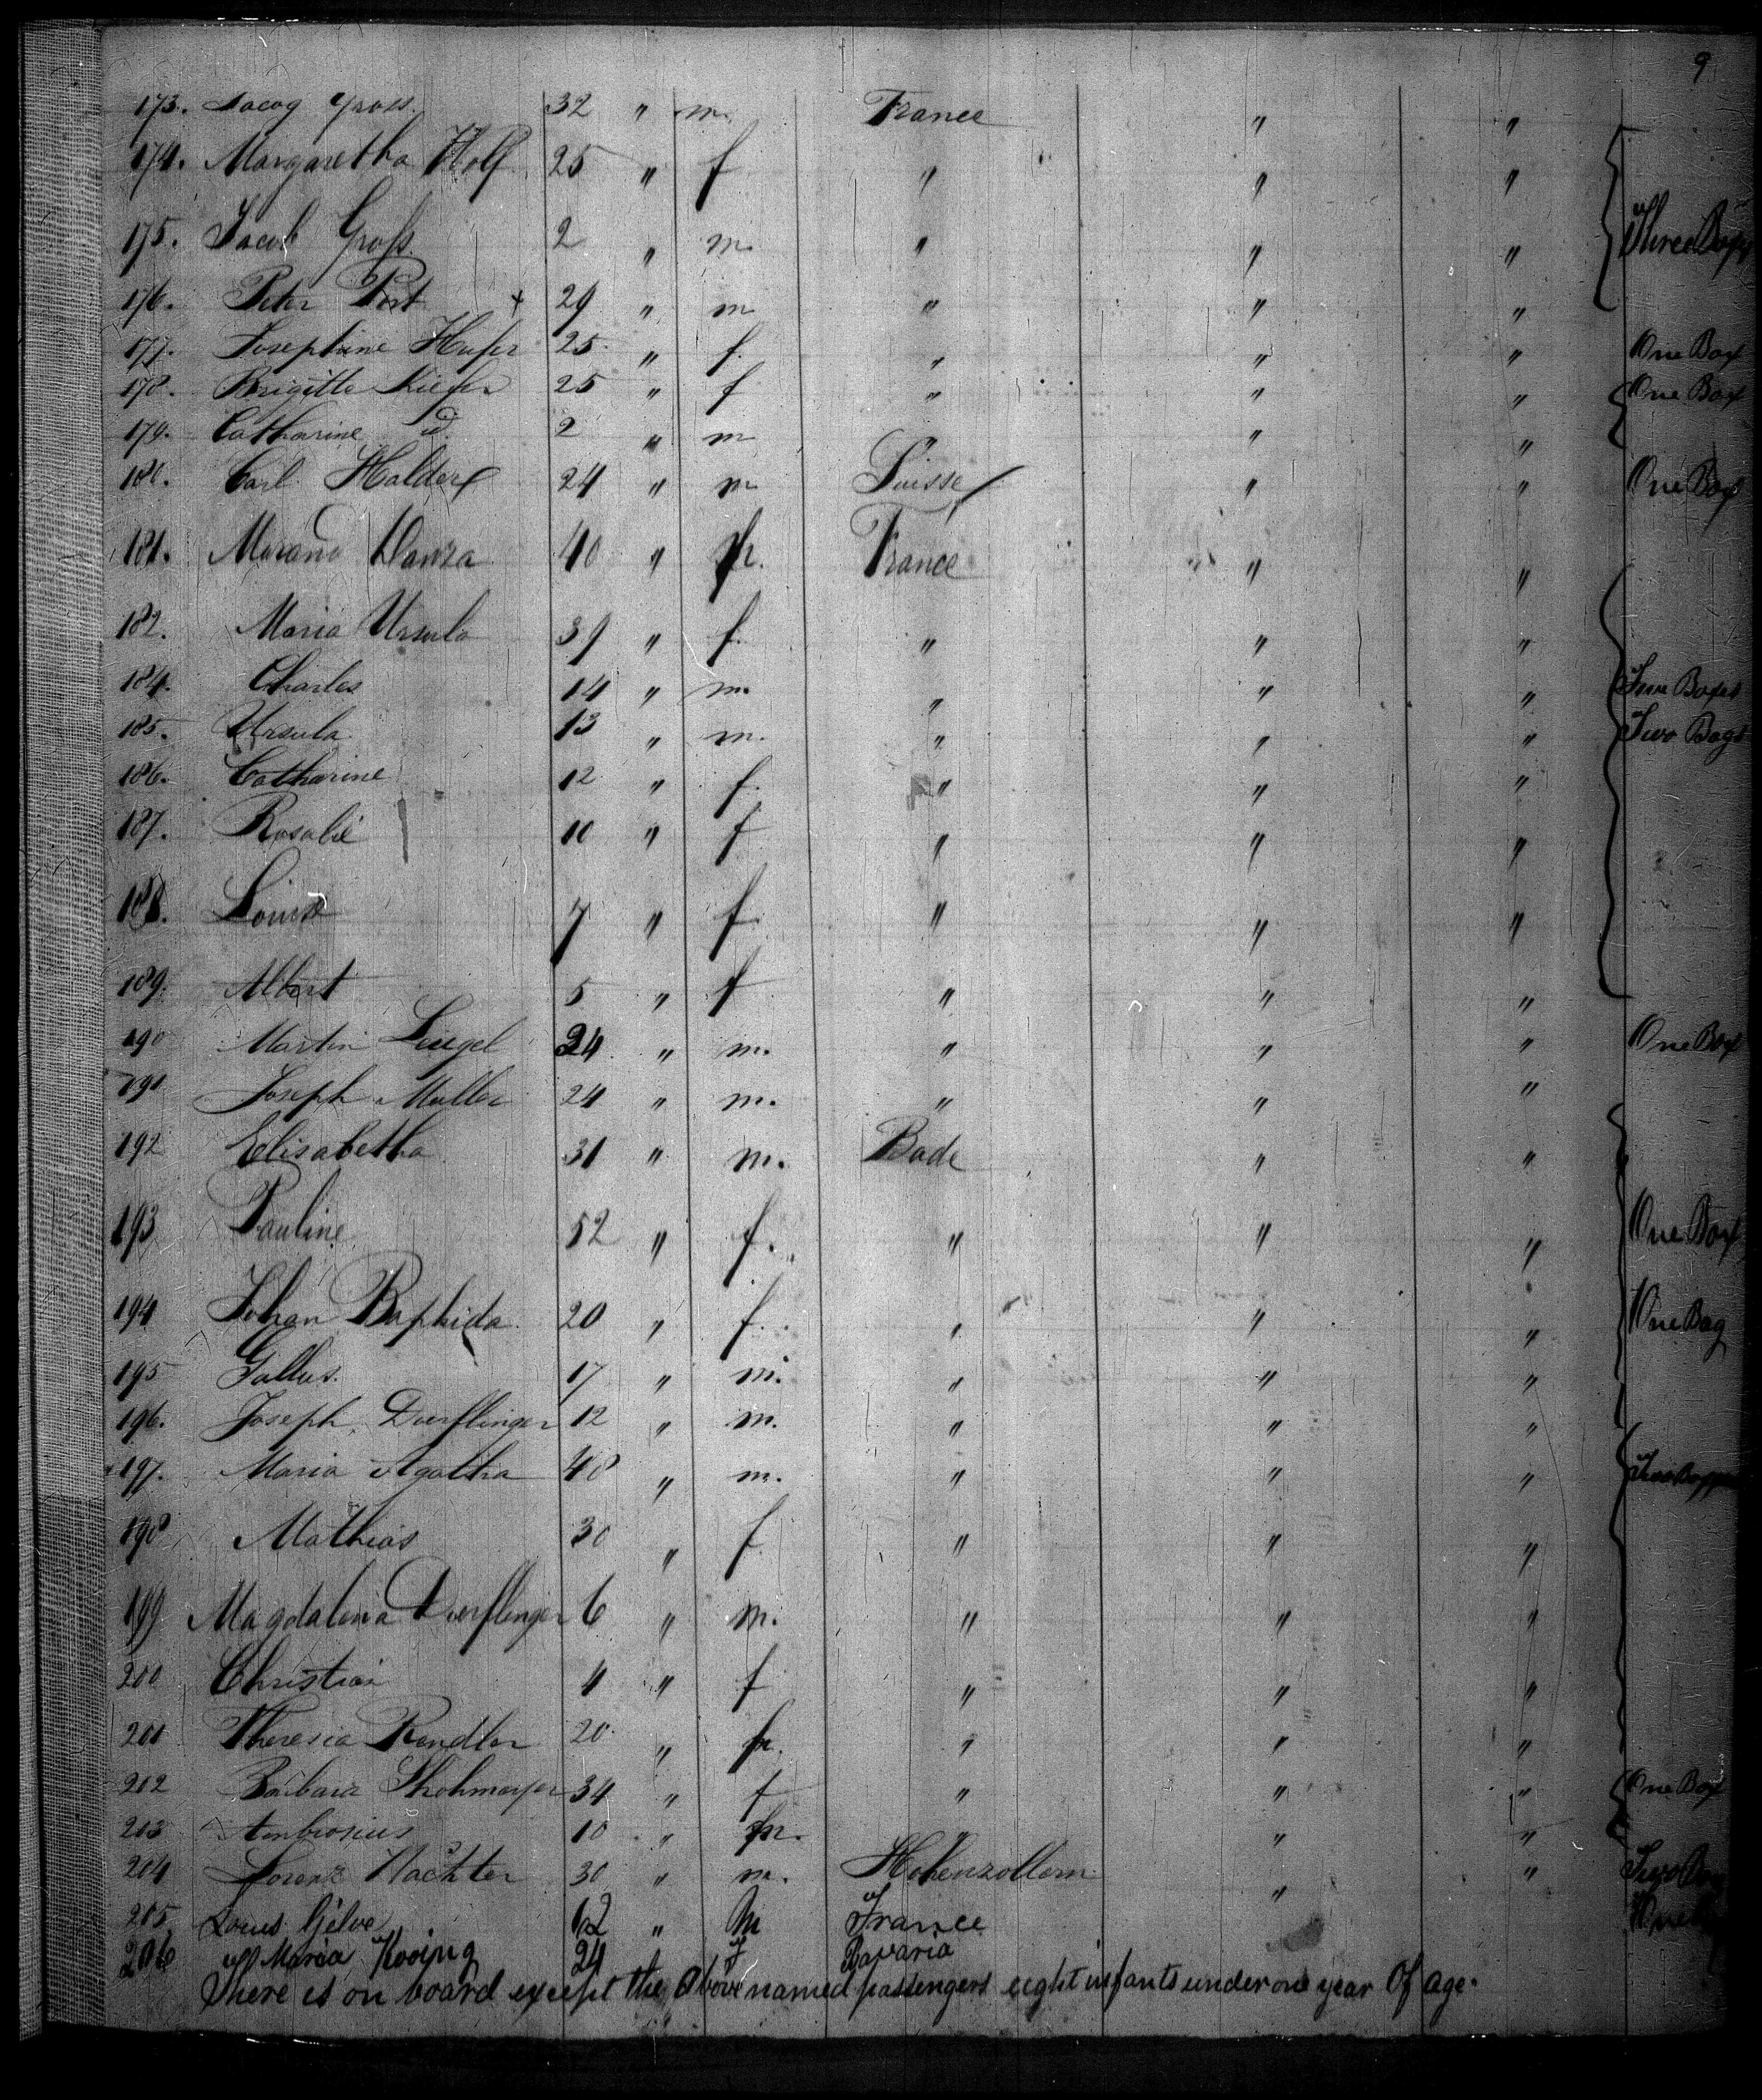 9
173. Jacog Gross. 32 " m. France " "
174. Margaretha Wolf 25 " f " " "
175. Jacob Groſs 2 " m. " " " Three Boxes
176. Peter Post + 29 " m " " "
177. Josephine Hufer 25 " f. " " " One Box
178. Brigitte Kiefer 25 " f " " " One Box
179. Catharine id. 2 " m " " "
180. Carl Halder 24 " m Suisse " " One Box
181. Morand Danza 40 " m. France " "
182. Maria Ursula 39 " f. " " "
184. Charles 14 " m. " " " Two Boxes
185. Ursula 13 " m. " " " Two Bags
186. Catharine 12 " f. " " "
187. Rosalie 10 " f " " "
188. Louise 7 " f " " "
189. Albert 5 " f " " "
190 Martin 24 " m. " " " One Box
191 Joseph Muller 24 " m. " " "
192 Elisabetha 31 " m. Bade " "
193 Pauline 52 " f. " " " One Box
194 Johan Baptista 20 " f. " " " One Bag
195 Gallus. 17 " m. " " "
196. Joseph Duerflinger 12 " m. " " "
197. Maria Agatha 48 " m. " " "
198 Mathias 30 " f " " "
199 Magdalena Duerflinger 6 " m. " " "
200 Christian 4 " f " " "
201 Theresia Rendler 20 " m. " " "
202 Barbara Strohmayer 34 " f " " " One Box
203 Ambrosius 10 " m. " " "
204 Lorenz Wachter 30 " m. Hohenzollern " " Two
205 Louis 62 " m France One
206 Maria 24 f Bavaria
There is on board except the above named passengers eight infants under one year of age.